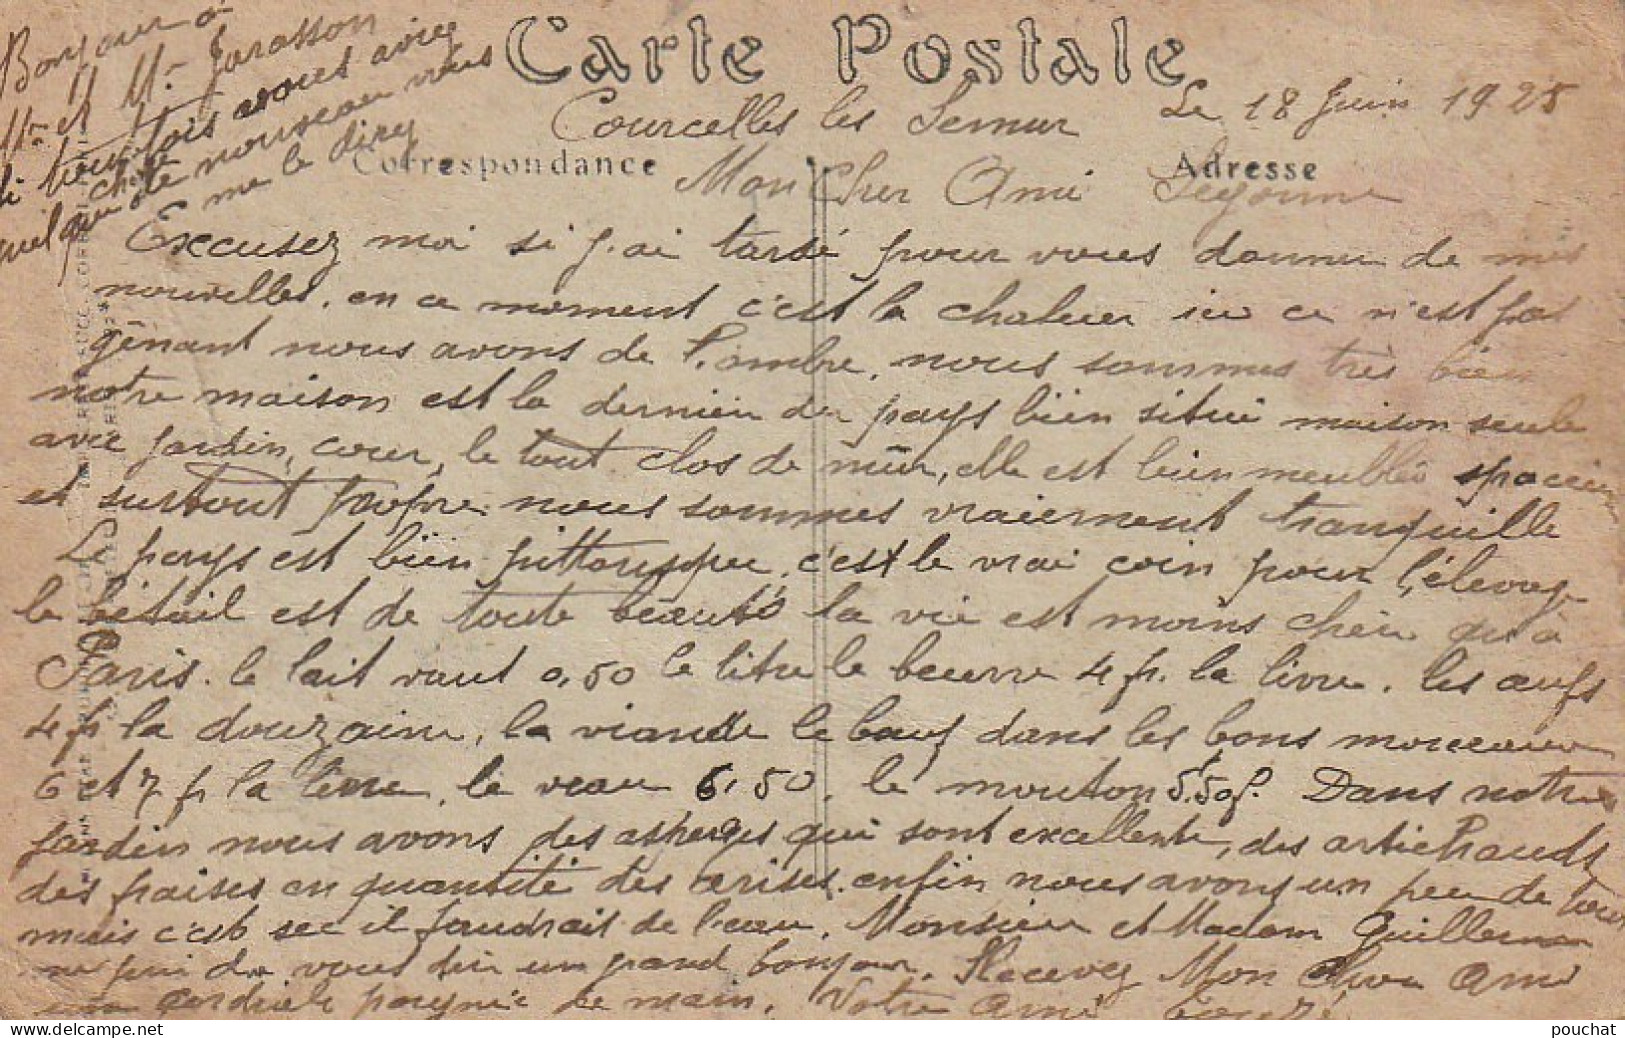 Carte Postale
Bonjour à
Mr et Mr Jarasson
si toutefois vous aviez
quelque chose
de nouveau vous
me le direz
Courcelles les Semur Le 18 Juin 1925
Correspondance Adresse
Mon Cher Ami
Excusez moi si j'ai tardé pour vous donner de mes
nouvelles. en ce moment c'est la chaleur ici ce n'est pas
gênant nous avons de l'ombre, nous sommes très bien
notre maison est la dernier du pays bien situé maison seule
avec jardin, cour, le tout clos de mur, elle est bien meublée
et surtout propre nous sommes vraiement tranquille
Le pays est bien pittoresque, c'est le vrai coin pour l'élevage
le bétail est de toute beauté la vie est moins chèr qu'à
Paris. le lait vaut 0,50 le litre le beurre 4 fr. la livre. les œufs
4 fr la douzaine, la viande le bœuf dans les bons morceaux
6 et 7 fr la livre, le veau 6,50, le mouton 5,50f. Dans notre
jardin nous avons des asperges qui sont excellente, des artichauds
des fraises en quantité des cerises. enfin nous avons un peu de tout
mais c'est sec il faudrait de l'eau. Monsieur et Madam Guillemin
me prie de vous dir un grand bonjour. Recevez Mon Cher Ami
une cordiale poignée de main. Votre Ami
pouchat